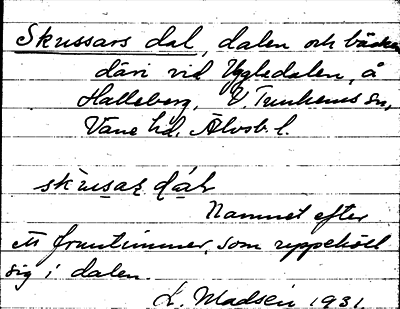 Skussars dal, dalen och bäcken
däri vid Uggledalen, å
Halleberg, V. Tunhems sn,
Väne hd, Älvsb. l.
Namnet efter
ett fruntimmer, som uppehöll
sig i dalen.
L. Madsén 1931